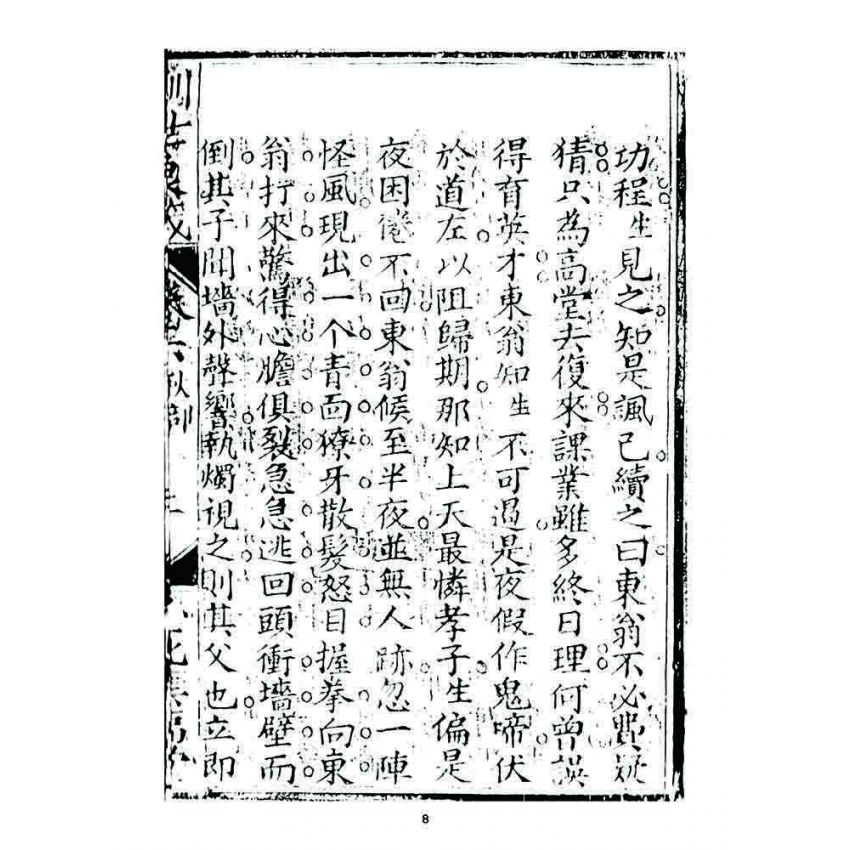 功程生見之知是諷己續之曰東翁不必費疑
猜只為高堂去復來課業雖多終日理何曾誤
得育英才東翁知生不可遏是夜假作鬼啼伏
於道左以阻歸期那知上天最憐孝子生偏是
夜困倦不回東翁候至半夜並無人跡忽一陣
怪風現出一个青面獠牙散髮怒目握拳向東
翁打來驚得心膽俱裂急急逃回頭衝墻壁而
倒其子聞墻外聲響執燭視之則其父也立即
卷六 秋部
8